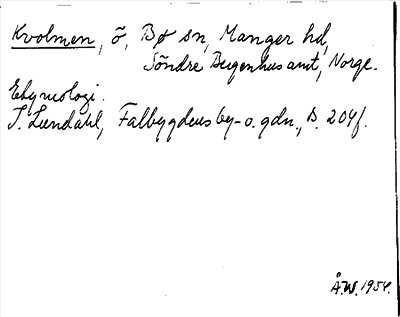 Kvolmen, ö, Bø sn, Manger hd,
Söndre Bergenhus amt, Norge.
Etymologi.
I. Lundahl, Falbygdens by- o. gdn., s. 204f.
Å.W. 1954.